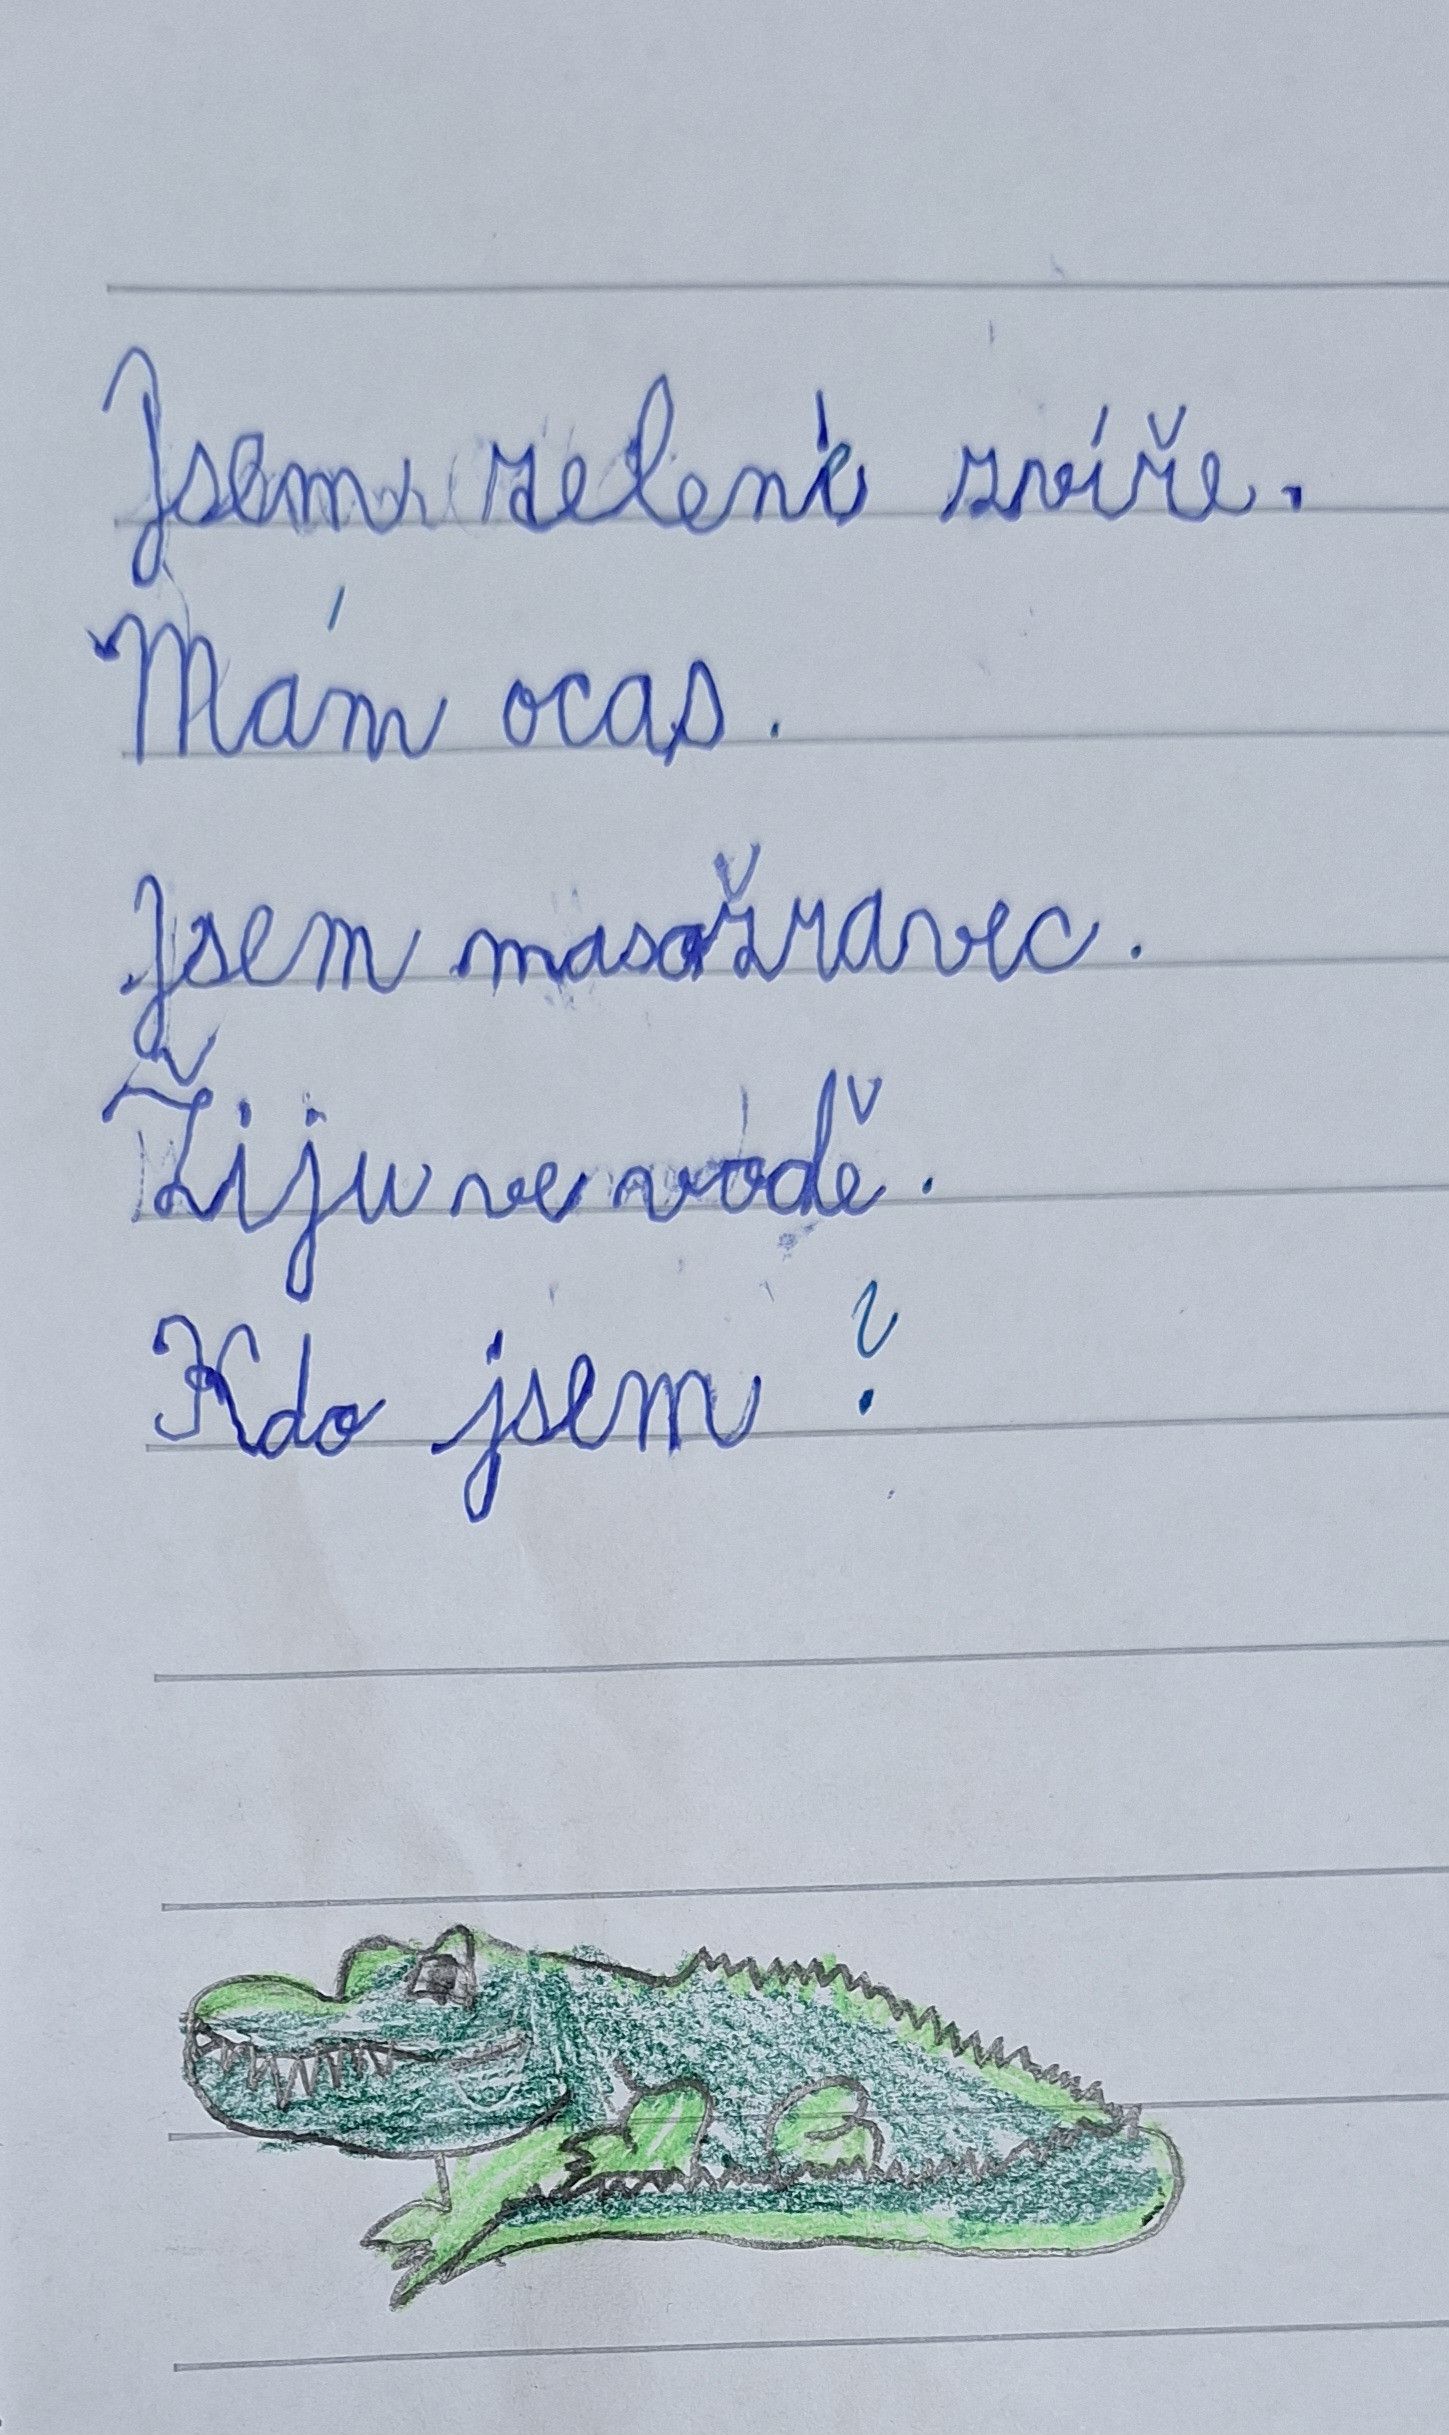 Jsem zelené zvíře.
Mám ocas.
Jsem masožravec.
Žiju ve vodě.
Kdo jsem?